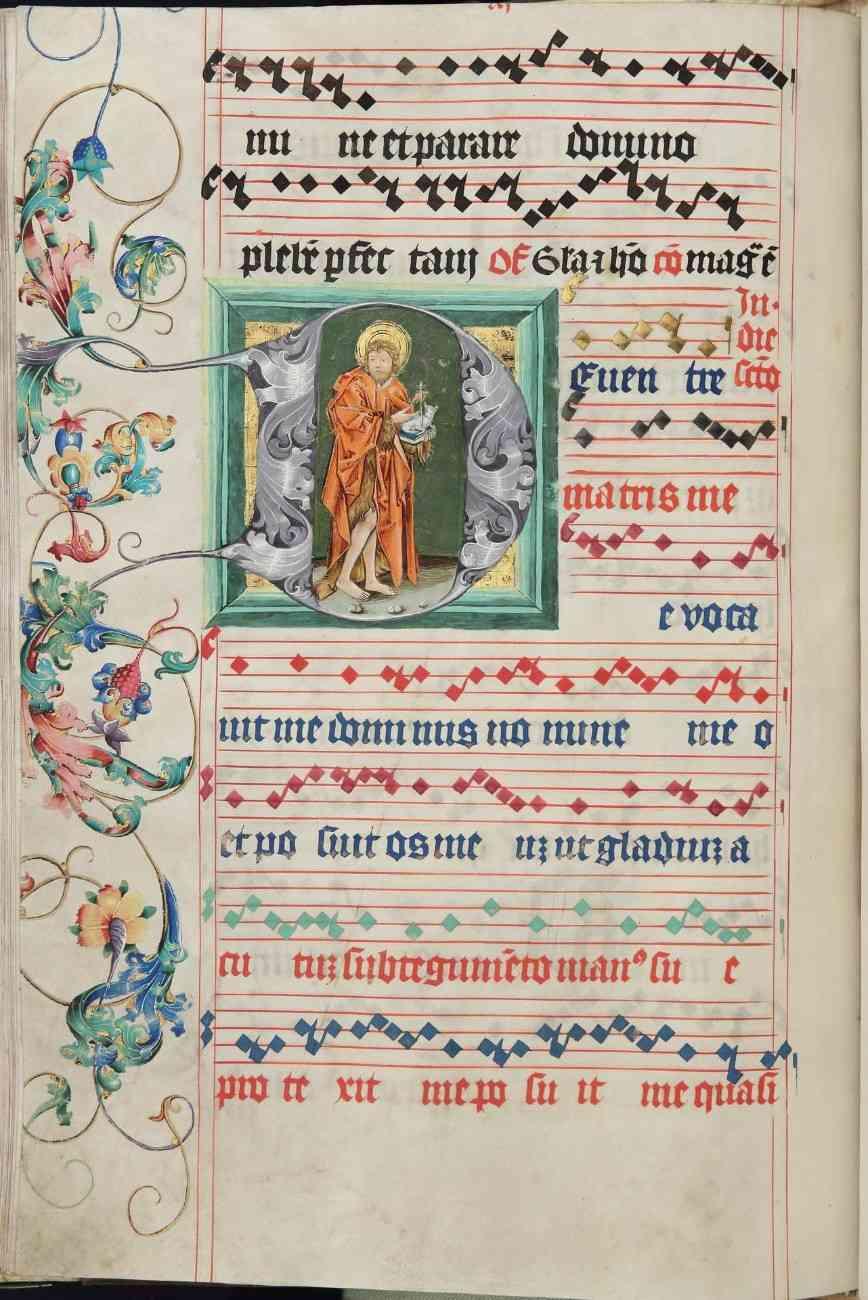 mi ne et parare domino
plebē pfec tam Of Gła ⁊ hō cō mag̃ ē
In
die
D Euen tre scto
matris me
e voca
uit me domi nus no mine me o
et po suit os me uꝫ ut gladiuꝫ a
cu tuꝫ sub tegumēto man⁹ su e
pro te xit me po su it me quasi